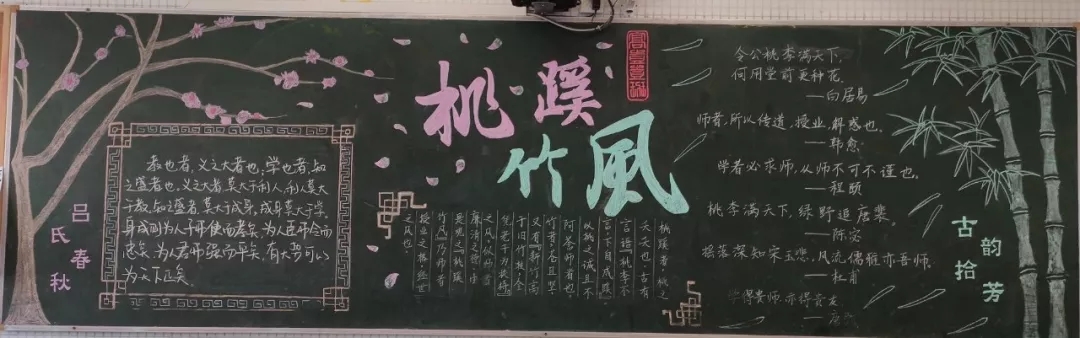 桃蹊
竹風
吕氏春秋
教也者,义之大者也;学也者,知
之盛者也。义之大者,莫大于利人,利人莫大
于教。知之盛者,莫大于成身,成身莫大于学。
身成则为人子弗使而孝矣,为人臣弗令而
忠矣,为人君弗强而平矣,有大势可以
为天下正矣。
桃蹊者,桃之
夭夭也。古有
言语桃李不
言下自成蹊。
以桃诚且不
师者也。
竹者,且坚
又有新竹高
于旧竹枝,全
凭老干为扶持
之风,似师者
廉洁之德,由
是思之,桃蹊
竹风乃师者
授业之根
之风也。
令公桃李满天下,
何用堂前更种花。
——白居易
师者,所以传道,授业,解惑也。
——韩愈
学者必求师,从师不可不谨也。
——程颐
桃李满天下,绿野追唐裴。
——陈宓
摇落深知宋玉悲,风流儒雅亦吾师。
——杜甫
学得贵师,亦得贵友
古韵拾芳